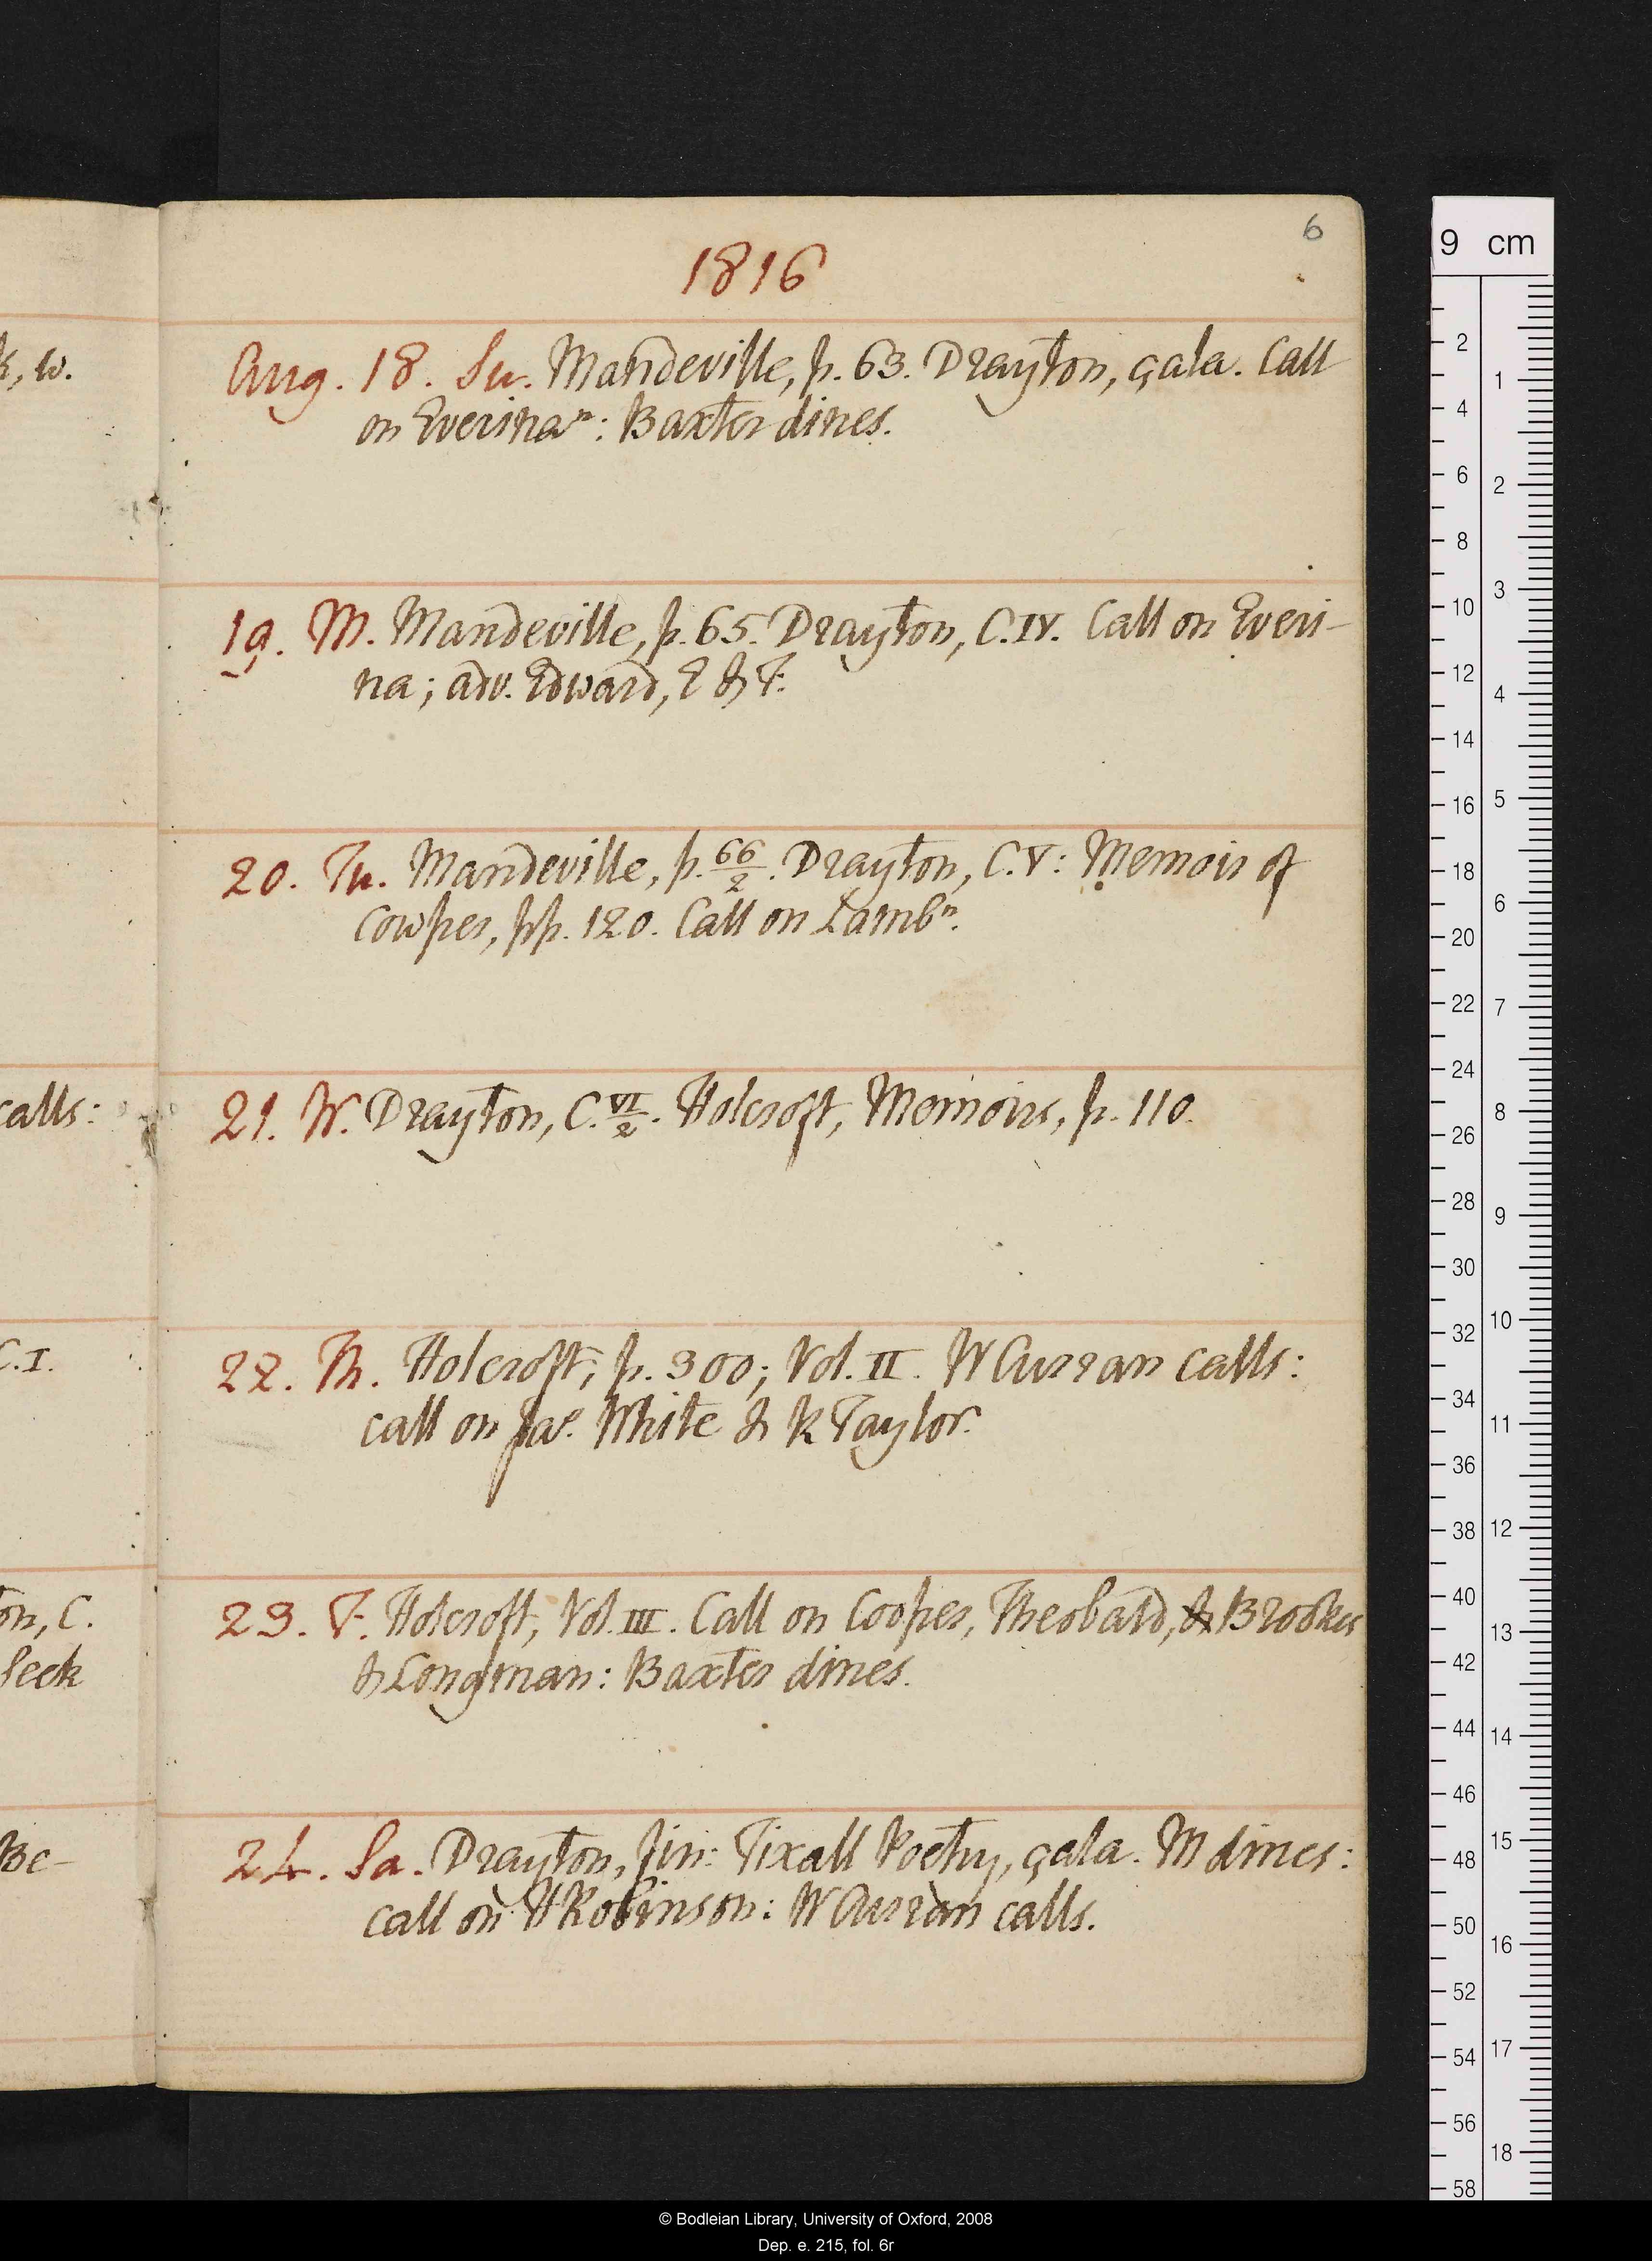 6
1816
Aug. 18. Su. Mandeville, p. 63. Drayton, çala. Call
on Everinaⁿ: Baxter dines.
19. M. Mandeville, p. 65. Drayton, C. IV. Call on Everi-
na; adv. Edward, E & F.
20. Tu. Mandeville, p. 66/2. Drayton, C. V: Memoir of
Cowper, pp. 120. Call on Lambⁿ.
21. W. Drayton, C. VI/2. Holcroft, Memoirs, p. 110.
22. Th. Holcroft, p. 300; Vol. II. W Curran calls:
call on Jas. White & R Taylor.
23. F. Holcroft, Vol. III. Call on Cooper, Theobald, & Brookes
& Longman: Baxter dines.
24. Sa. Drayton, fin: Tixall Poetry, çala. M dines:
call on H Robinson: W Curran calls.
k, w.
calls:
C. I.
on, C.
seek
Be-
9 cm
2
4
6
8
10
12
14
16
18
20
22
24
26
28
30
32
34
36
38
40
42
44
46
48
50
52
54
56
58
1
2
3
4
5
6
7
8
9
10
11
12
13
14
15
16
17
18
© Bodleian Library, University of Oxford, 2008
Dep. e. 215, fol. 6r